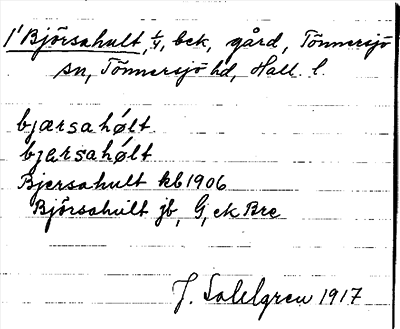 1' Björsahult, 1/4, bck, gård, Tönnersjö
sn, Tönnersjö hd, Hall. l.
bjærsahølt
bjærsahølt
Bjersahult kb 1906
Björsahult jb, G, ek Bre
J. Sahlgren 1917